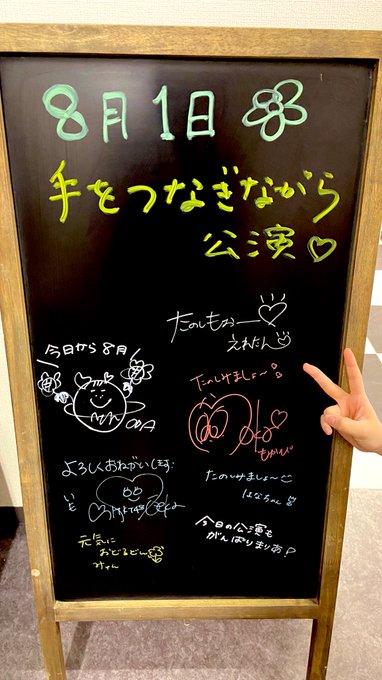 8月1日
手をつなぎながら
公演♡
たのしもおー♡
えれたん
今日から8月
たのしみましょ〜!
もかぴ
よろしくおねがいします!
いと
たのしみましょ〜
はなちゃん
元気に
おどるどん
みゃん
今日の公演も
がんばりまりあ!